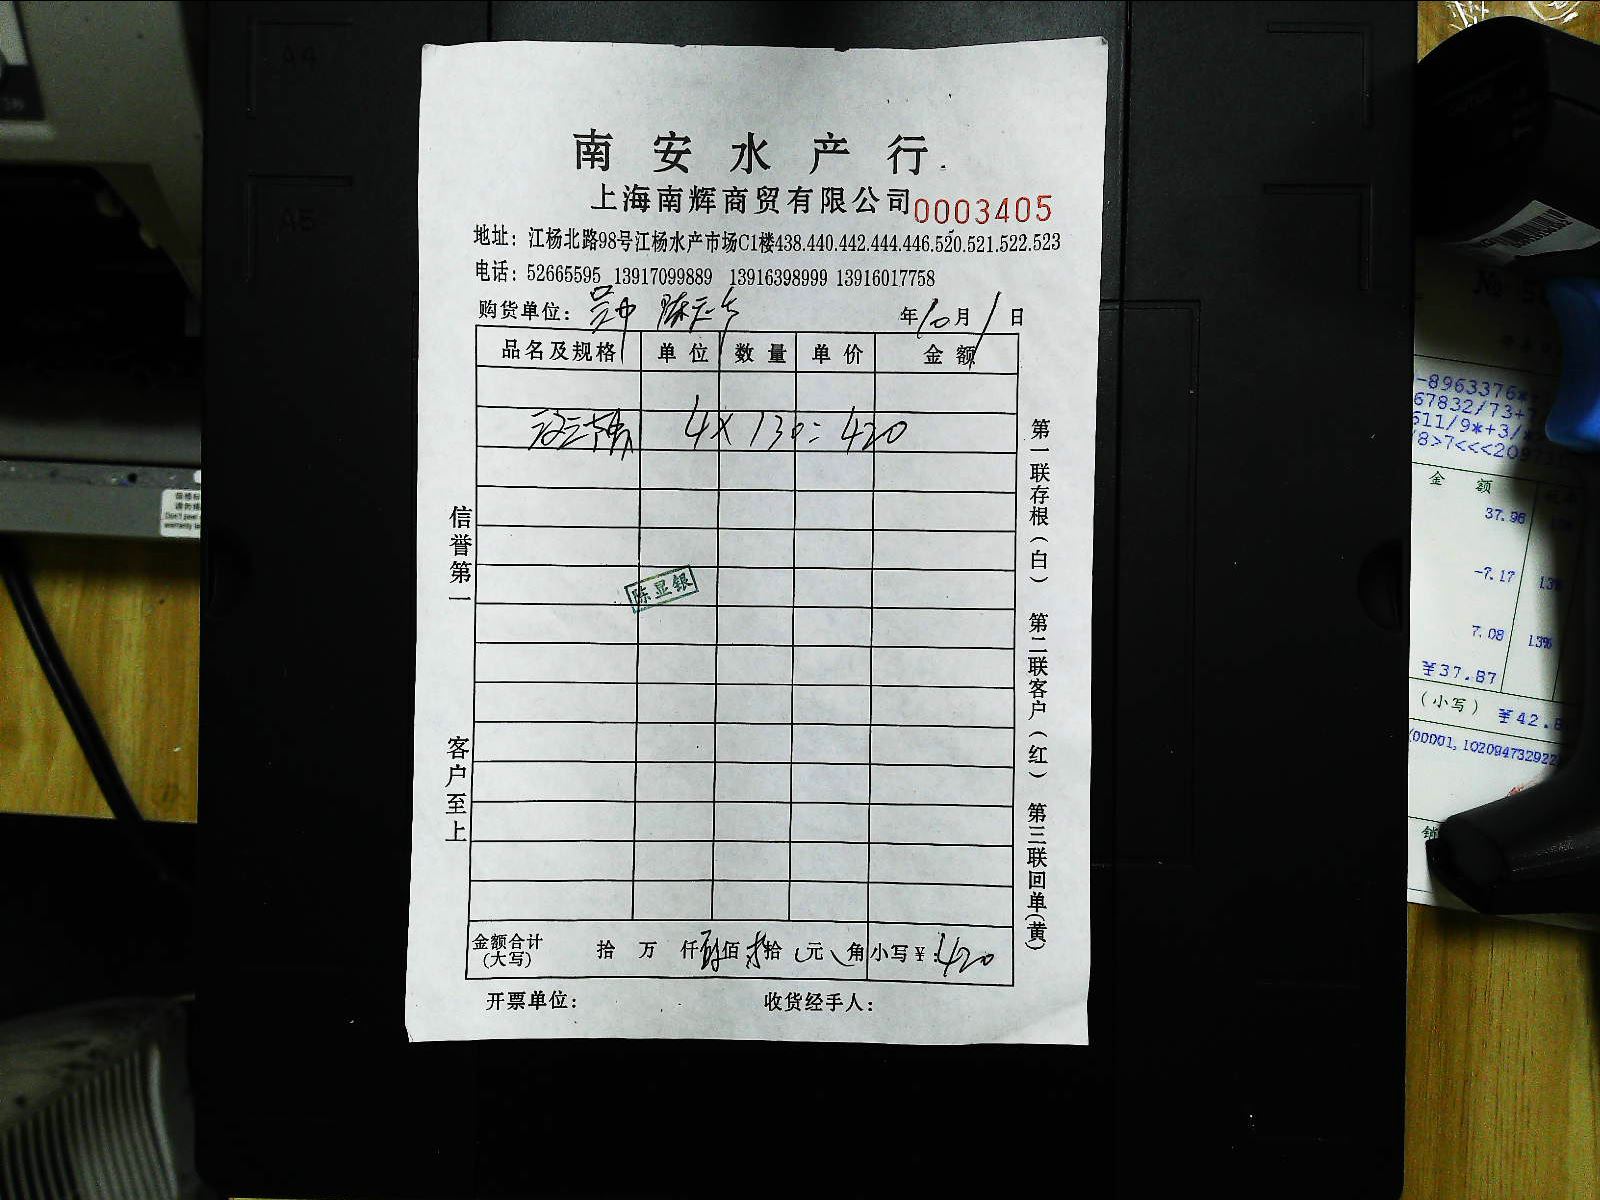 南安水产行
上海南辉商贸有限公司 0003405
地址：江杨北路98号江杨水产市场C1楼438.440.442.444.446.520.521.522.523
电话：52665595 13917099889 13916398999 13916017758
购货单位： 年10月1日
品名及规格 单位 数量 单价 金额
4X130=420
陈显银
金额合计(大写) 拾 万 仟 佰 拾 元 角 小写￥：420
开票单位： 收货经手人：
信誉第一 客户至上
第一联存根(白) 第二联客户(红) 第三联回单(黄)
A4
A5
-8963376*
67832/73+
611/9*+3/
/8>7<<<209
金额
37.96
-7.17 13%
7.08 13%
¥37.87
(小写) ¥42.8
(00001,102094732922